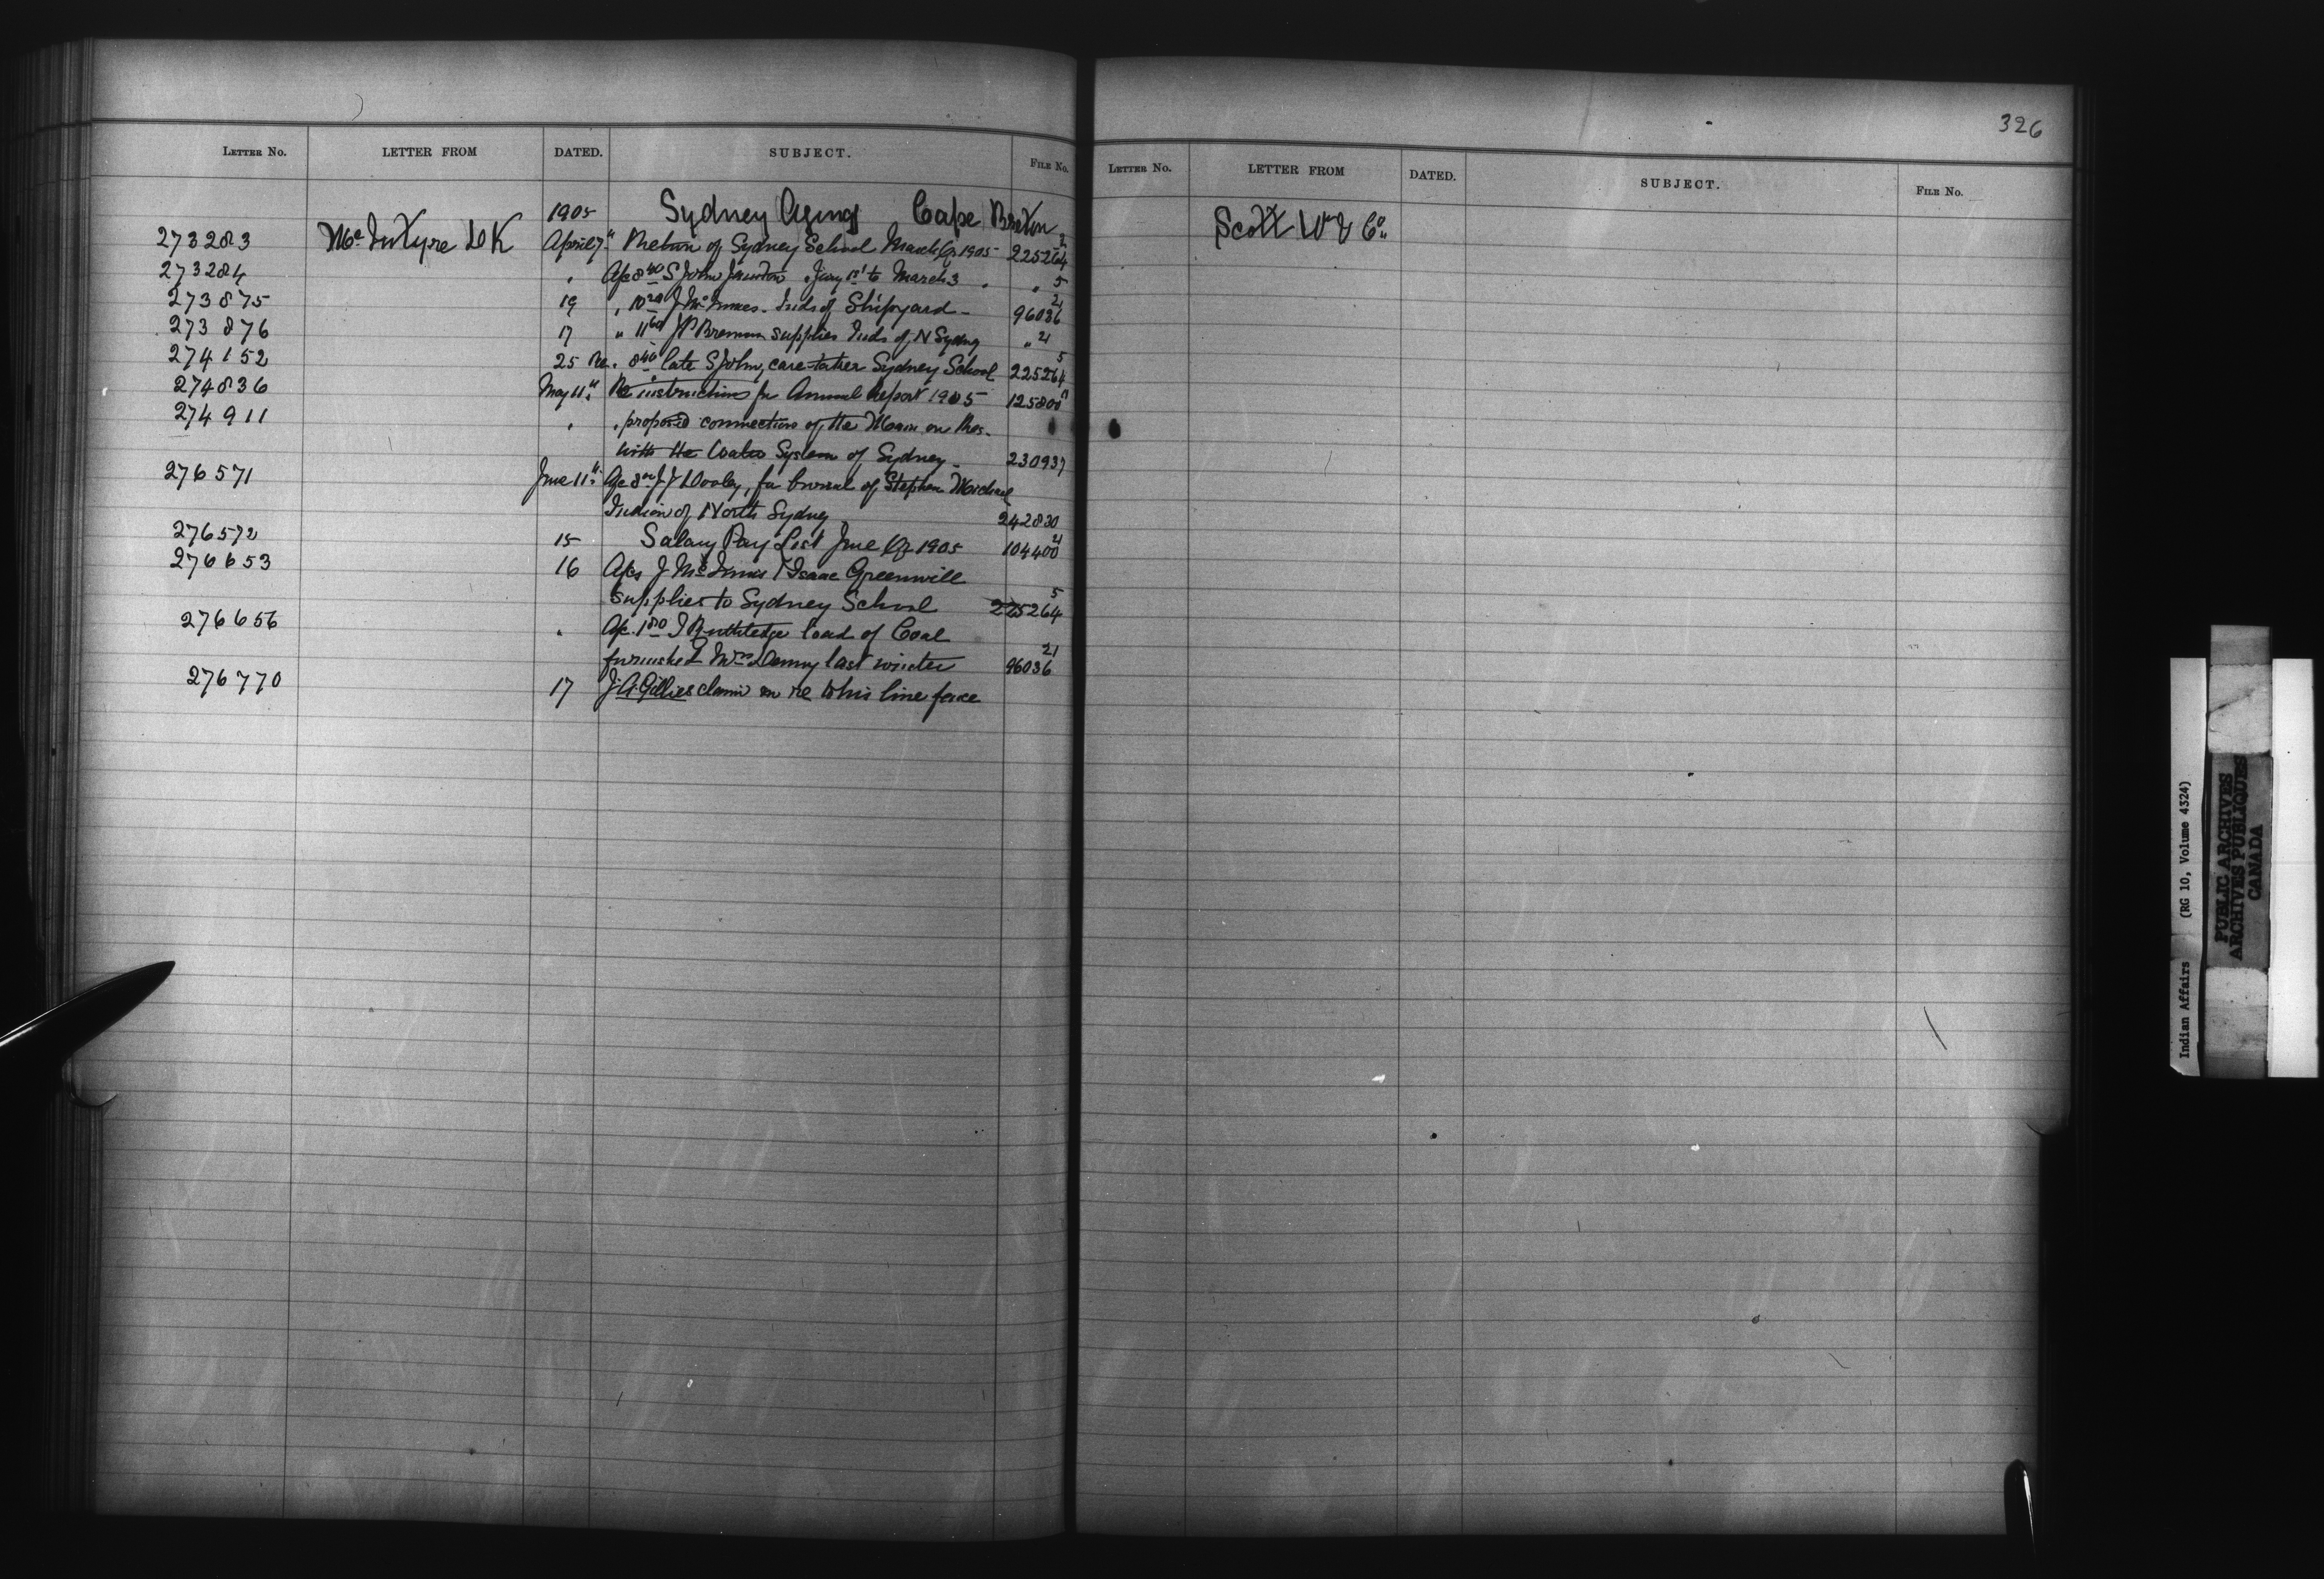 326
LETTER NO. LETTER FROM DATED. SUBJECT. FILE NO.
1905 Sydney Agency Cape Breton
273283 McIntyre D K April 7" Return of Sydney School March Qr 1905 225264 2
273284 " Ac 8 40 S John Janitor Jany 1st to March 3 " " 5
273875 19 " 10 20 J McInnes. Inds of Shipyard - 96036 21
273876 17 " 11 60 J P Brennan supplies Inds of N Sydney " 21
274152 25 Re. 8 40 late S John, care-taker Sydney School 225264 5
274836 May 11" Re instructions for Annual Report 1905 125800
274911 " " proposed connection of the Main on Res.
with the Water System of Sydney - 230937
276571 June 11" Ac 8 00 J J Dooley, for burial of Stephen Michael
Indian of North Sydney 242830
276572 15 Salary Pay List June Qr 1905 104400 21
276653 16 Acs J McInnes & Isaac Greenwill
supplies to Sydney School 225264 5
276656 " Ac. 1 80 J Ruthledge load of Coal
furnished Mrs Denny last winter 96036 21
276770 17 J. A. Gillies claim in re to his line fence
LETTER NO. LETTER FROM DATED. SUBJECT. FILE NO.
Scott W & Co.
Indian Affairs (RG 10, Volume 4324)
PUBLIC ARCHIVES
ARCHIVES PUBLIQUES
CANADA